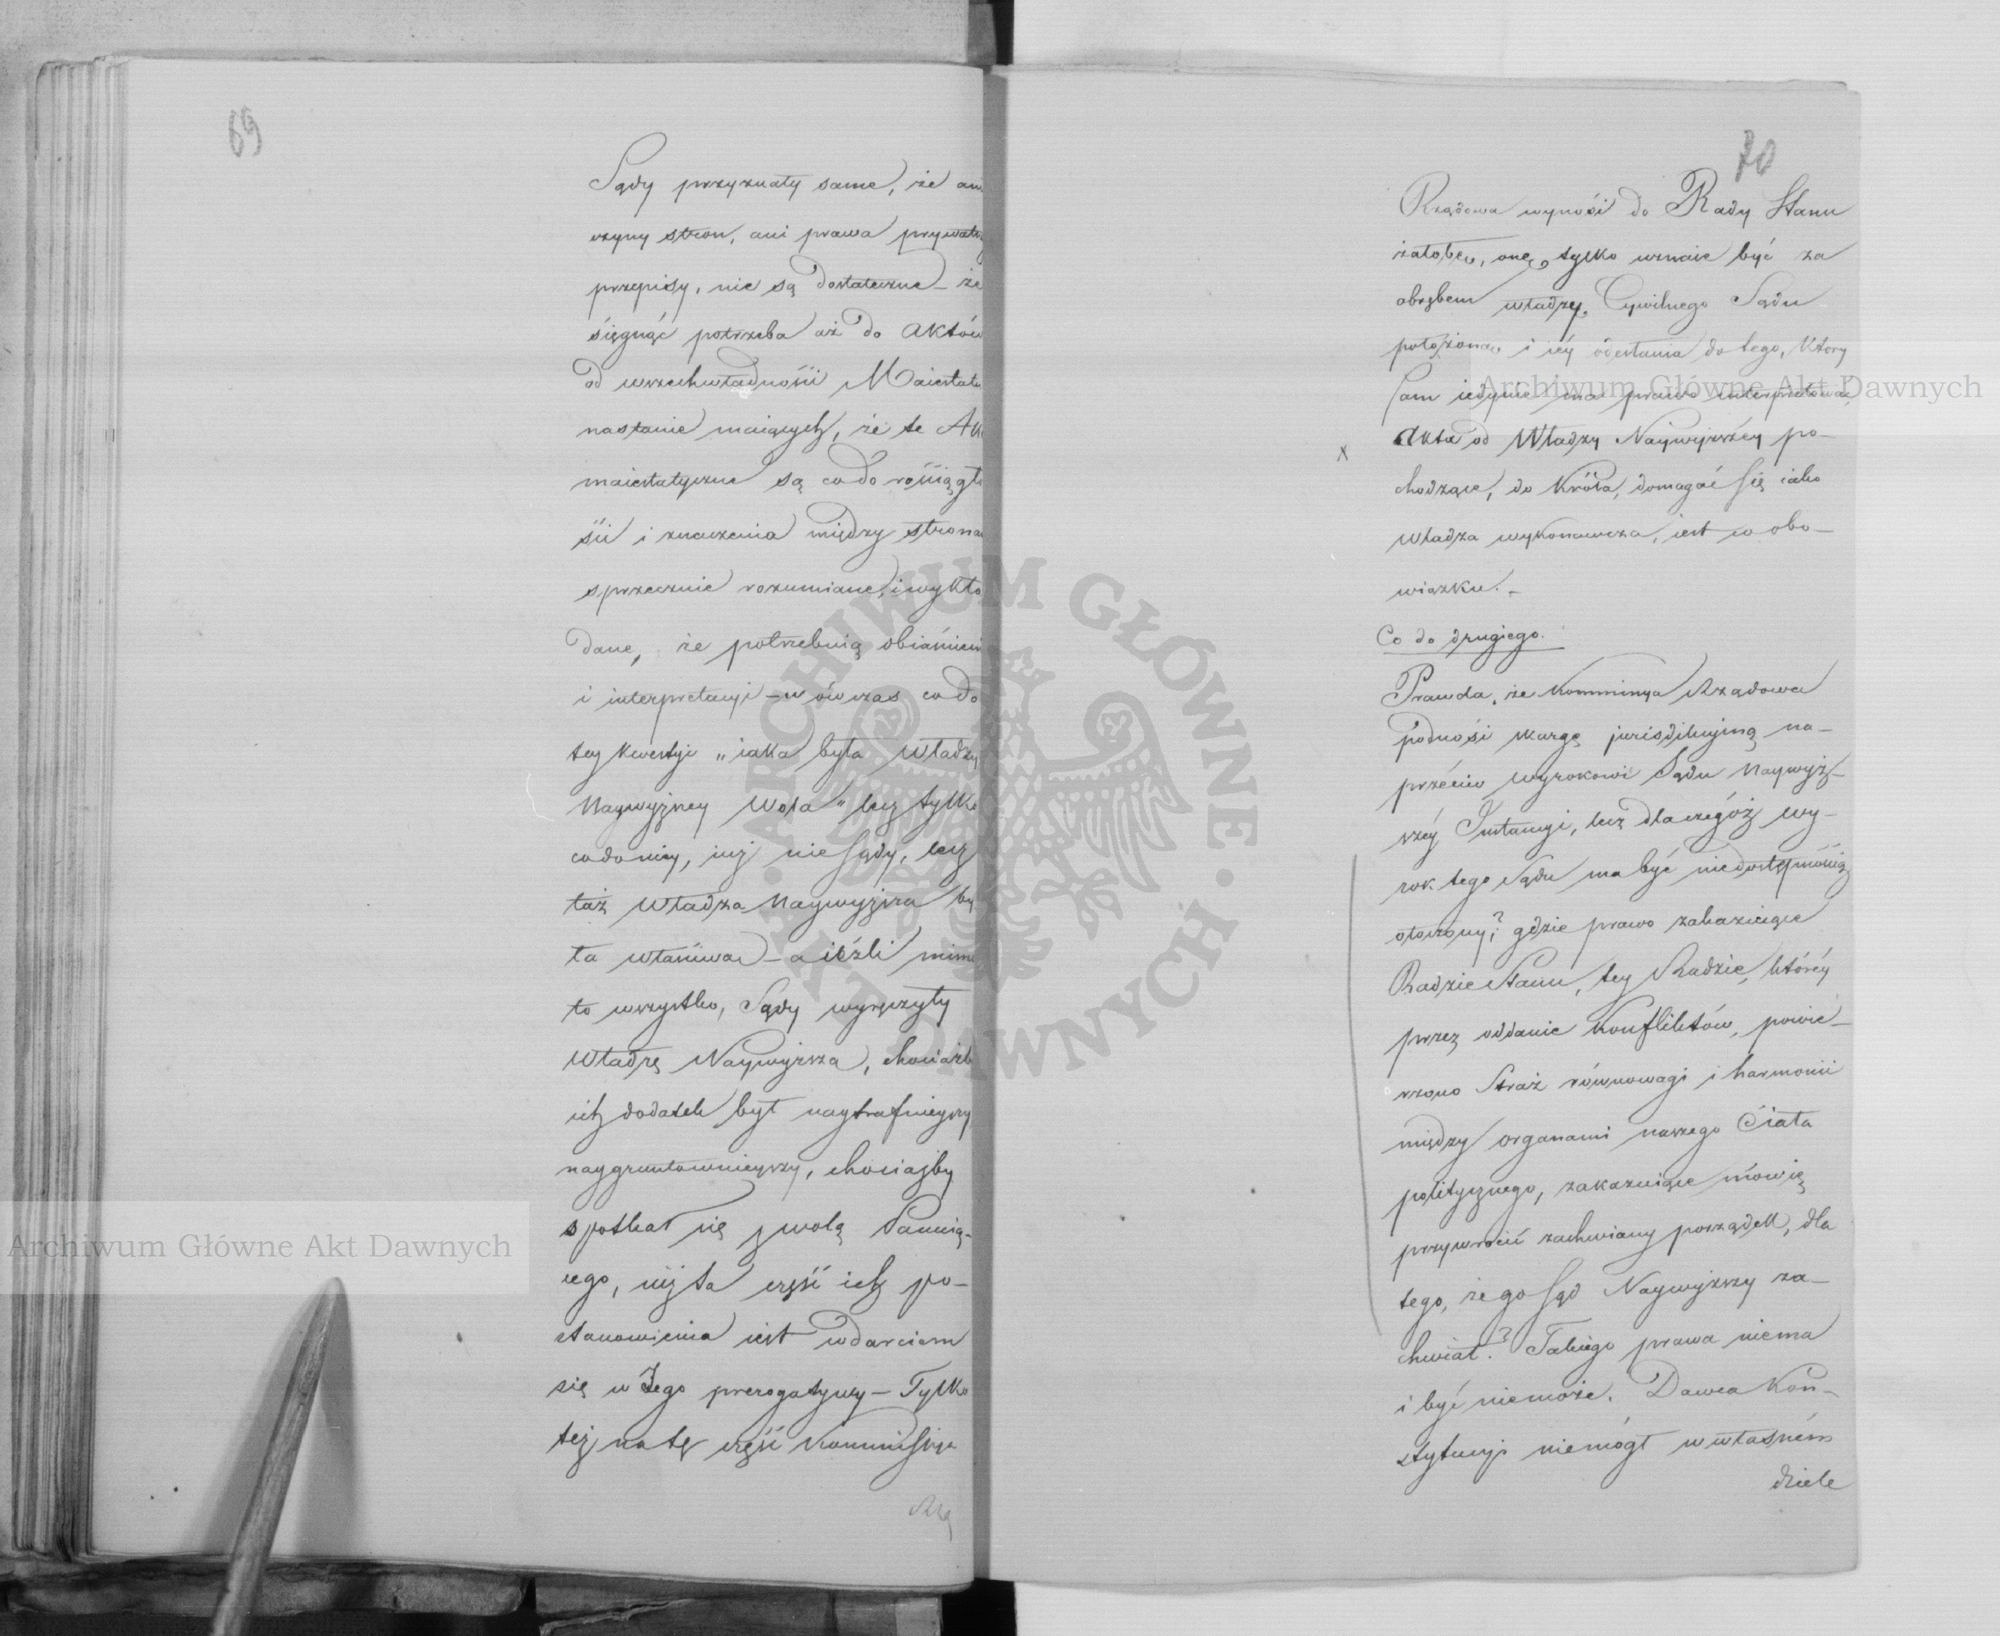 69
Sądy przyznały same, że ani
czyny stron, ani prawa prywatne
przepisy, nie są dostateczne – że
sięgnąć potrzeba aż do Aktów
od wszechwładności Maiestatu
nastanie maiących, że te Akta
maiestatyczne są co do rosciągło
ści i znaczenia między stronami
sprzecznie rozumiane, i wykła
dane, że potrzebuią obiaśnień
i interpretacyi – w ówczas co do
tey kwestyi „iaka była Władzy
Naywyższey Wola” lecz tylko
co do niey, iuż nie Sądy, lecz
taż Władza Naywyższa by
ła właściwa – a ieźli mimo
to wszystko, Sądy wyręczyły
Władzę Naywyższa, chociażb
ich dodatek był naytrafnieyszy
naygruntownieyszy, chociażby
spotkał się z wolą Panuią-
cego, iuż ta część ich po-
stanowienia iest wdarciem
się w Jego prerogatywy – Tylko
też na tę część Kommissya
Rzą
70
Rządowa wynosi do Rady Stanu
żałobę, onę tylko uznaie być za
obrębem władzy Cywilnego Sądu
położona i iéy odesłania do tego, który
Sam iedynie ma prawo interpretować
Akta od Władzy Naywyższéy po-
chodzące, do Króla, domagać się iako
władza wykonawcza, iest w obo-
wiązku. –
Co do drugiego.
Prawda, że Kommissya Rządowa
podnosi skargę jurisdikcyiną na-
przeciw wyrokowi Sądu Naywyż-
széy Instancyi, lecz dla czegóż wy-
rok tego Sądu ma być niedostępnością
otoczony? gdzie prawo zakazuiące
Radzie Stanu, tey Radzie, któréy
przez oddanie Konfliktów, powie-
rzono Straż równowagi i harmonii
między organami naszego Ciała
politycznego, zakazuiące mówię
przywrócić zachwiany porządek, dla
tego, że go Sąd Naywyższy za-
chwiał? Takiego prawa niema
i być niemoże. Dawca Kon-
stytucyi niemógł w własném
dziele
Archiwum Główne Akt Dawnych
Archiwum Główne Akt Dawnych
ARCHIWUM GŁÓWNE AKT DAWNYCH